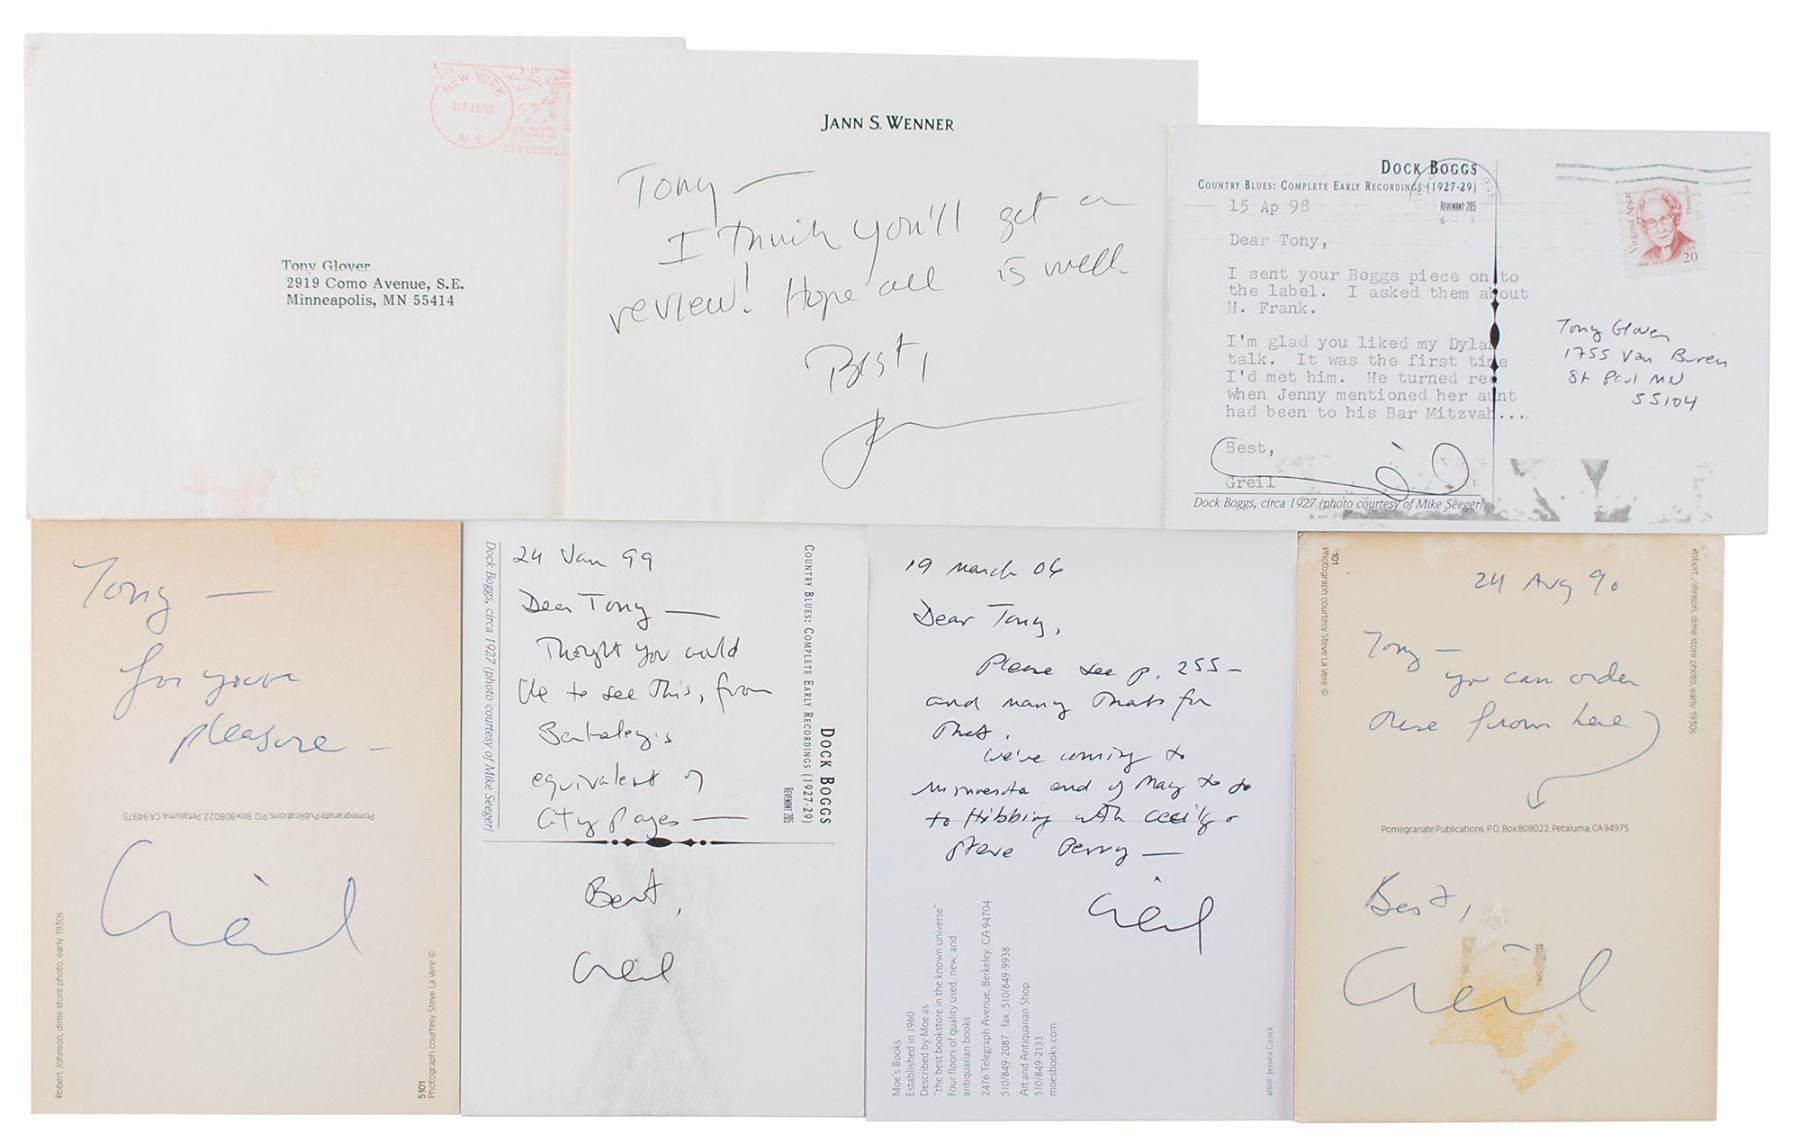 NEW YORK
SEP 10'90
N.Y.
Tony Glover
2919 Como Avenue, S.E.
Minneapolis, MN 55414
JANN S. WENNER
Tony —
I think you'll get a
review! Hope all is well.
Best,
DOCK BOGGS
COUNTRY BLUES: COMPLETE EARLY RECORDINGS (1927-29)
REVENANT 205
15 Ap 98
Dear Tony,
I sent your Boggs piece on to
the label. I asked them about
H. Frank.
I'm glad you liked my Dylan
talk. It was the first time
I'd met him. He turned red
when Jenny mentioned her aunt
had been to his Bar Mitzvah....
Best,
Greil
Dock Boggs, circa 1927 (photo courtesy of Mike Seeger)
Virginia Apgar
1909 1974
Physician
20
Tony Glover
1755 Van Buren
St Paul MN
55104
Tony —
for your
pleasure —
Pomegranate Publications, P.O. Box 808022, Petaluma, CA 94975
Greil
Robert Johnson, dime store photo, early 1930s
5101
Photograph courtesy Steve La Vere ©
Dock Boggs, circa 1927 (photo courtesy of Mike Seeger)
24 Jan 99
Dear Tony —
Thought you would
like to see this, from
Berkeley's
equivalent of
City Pages —
Best,
Greil
DOCK BOGGS
COUNTRY BLUES: COMPLETE EARLY RECORDINGS (1927-29)
REVENANT 205
19 March 06
Dear Tony,
Please see p. 255—
and many thanks for
that.
We're coming to
Minnesota end of May to go
to Hibbing with Cecily &
Steve Perry —
Greil
Moe's Books
Established in 1960
Described by Moe as
"the best bookstore in the known universe"
Four floors of quality used, new, and
antiquarian books
2476 Telegraph Avenue, Berkeley, CA 94704
510/849-2087 fax: 510/849-9938
Art and Antiquarian Shop
510/849-2133
moesbooks.com
artist: Jessica Cusick
101
Photograph courtesy Steve La Vere ©
Robert Johnson, dime store photo, early 1930s
24 Aug 90
Tony —
you can order
these from here
Pomegranate Publications, P.O. Box 808022, Petaluma, CA 94975
Best,
Greil